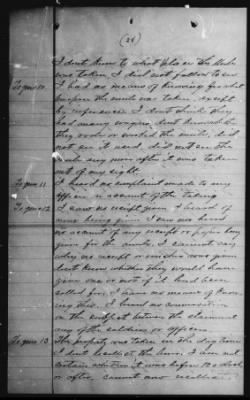 (26)
I don't know to what place the Mule
was taken, I did not follow to see
To ques 10. I had no means of knowing for what
purpose the mule was taken, except
by inference. I don't think they
had many wagons, but know whether
they rode or worked the mule, did
not see it used, did not see the
Mule any more after it was taken
out of my sight.
To ques 11 I heard no complaint made to any
officer on account of the taking
To ques 12. I saw no receipt given. I heard of
none being given I saw nor heard
no account of any receipt or paper being
given for the mule. I cannot say
why no receipt or voucher was given
don't know whether they would have
given one or not if it had been
called for, I have no means of know
ing this. I heard no conversation
on the subject between the claimant
any of the soldiers or officers
To ques 13 The property was taken in the day time
I don't recollect the hour. I am not
certain whether it was before 12 o'clock
or after, cannot now recollect